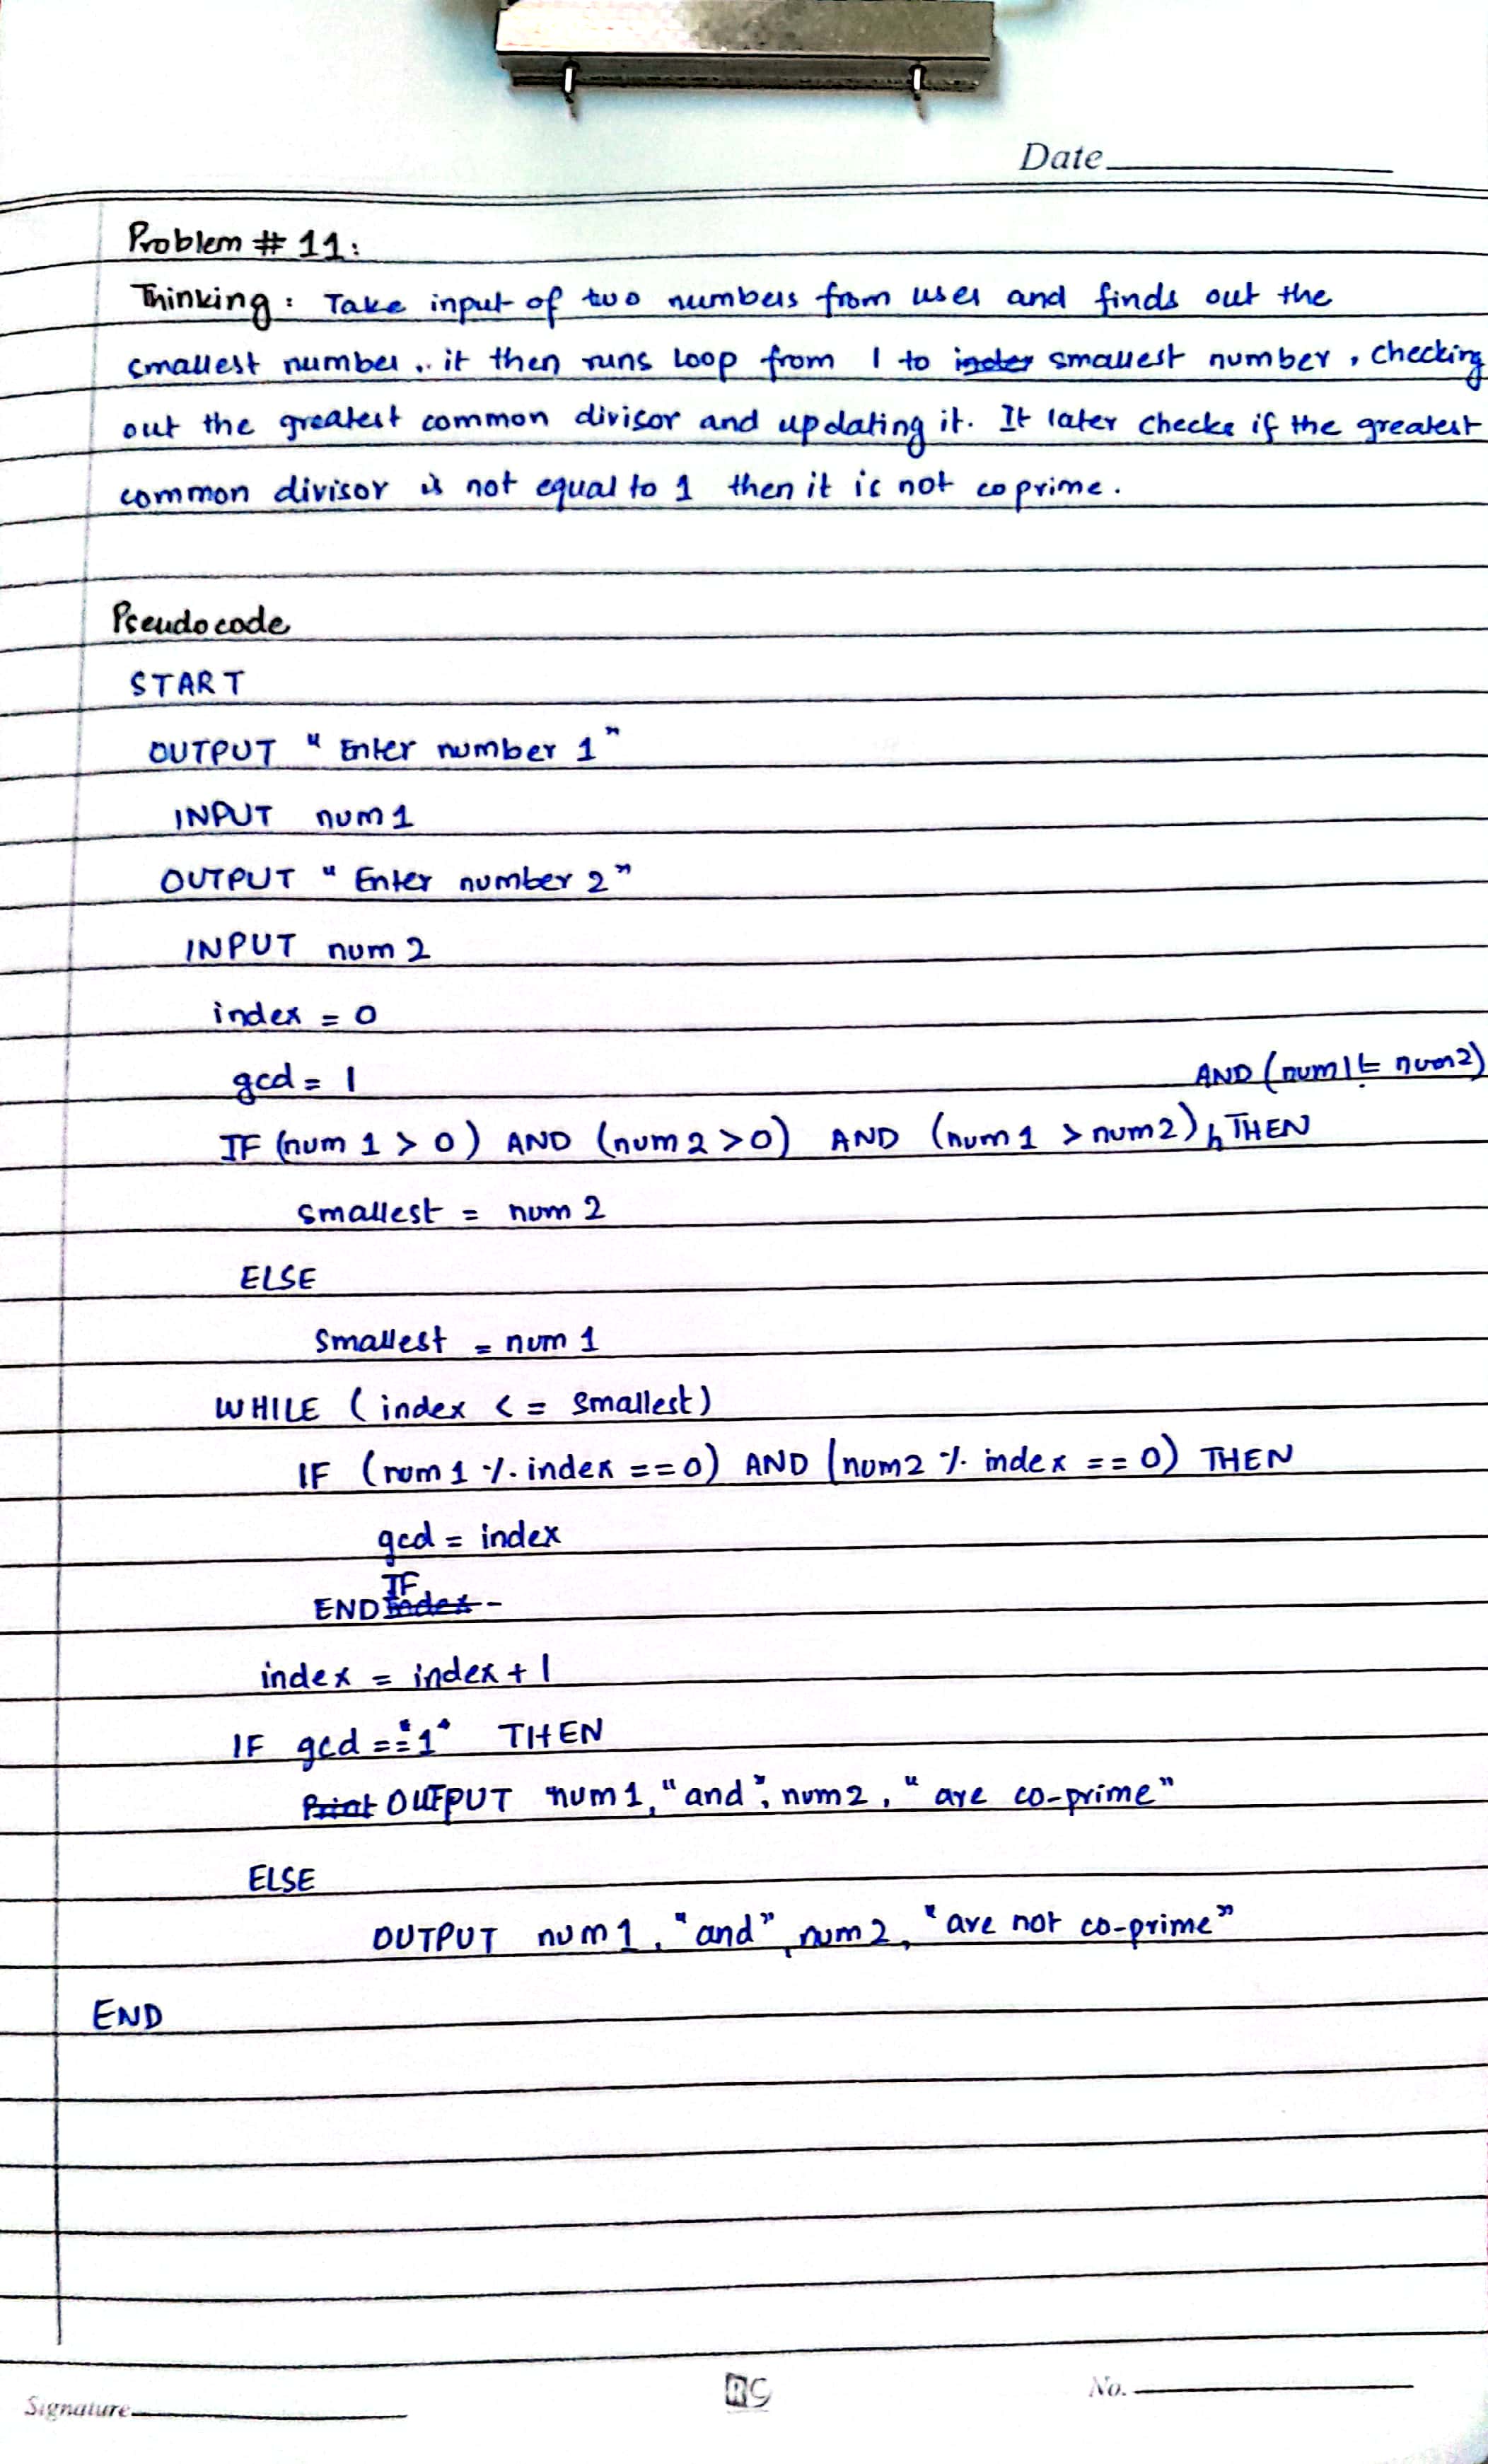 Date
Problem # 11:
Thinking: Take input of two numbers from user and finds out the
smallest number.. it then runs loop from 1 to index smallest number, checking
out the greatest common divisor and updating it. It later checks if the greatest
common divisor is not equal to 1 then it is not coprime.
Pseudocode
START
OUTPUT "Enter number 1"
INPUT num1
OUTPUT "Enter number 2"
INPUT num2
index = 0
gcd = 1
AND (num1 != num2)
IF (num 1 > 0) AND (num2 >0) AND (num1 > num2), THEN
smallest = num 2
ELSE
smallest = num 1
WHILE (index <= smallest)
IF (num1 % index ==0) AND (num2 % index == 0) THEN
gcd = index
IF
END index -
index = index + 1
IF gcd == "1" THEN
Print OUTPUT num1, "and", num2, "are co-prime"
ELSE
OUTPUT num1, "and", num2, "are not co-prime"
END
Signature
RC
No.